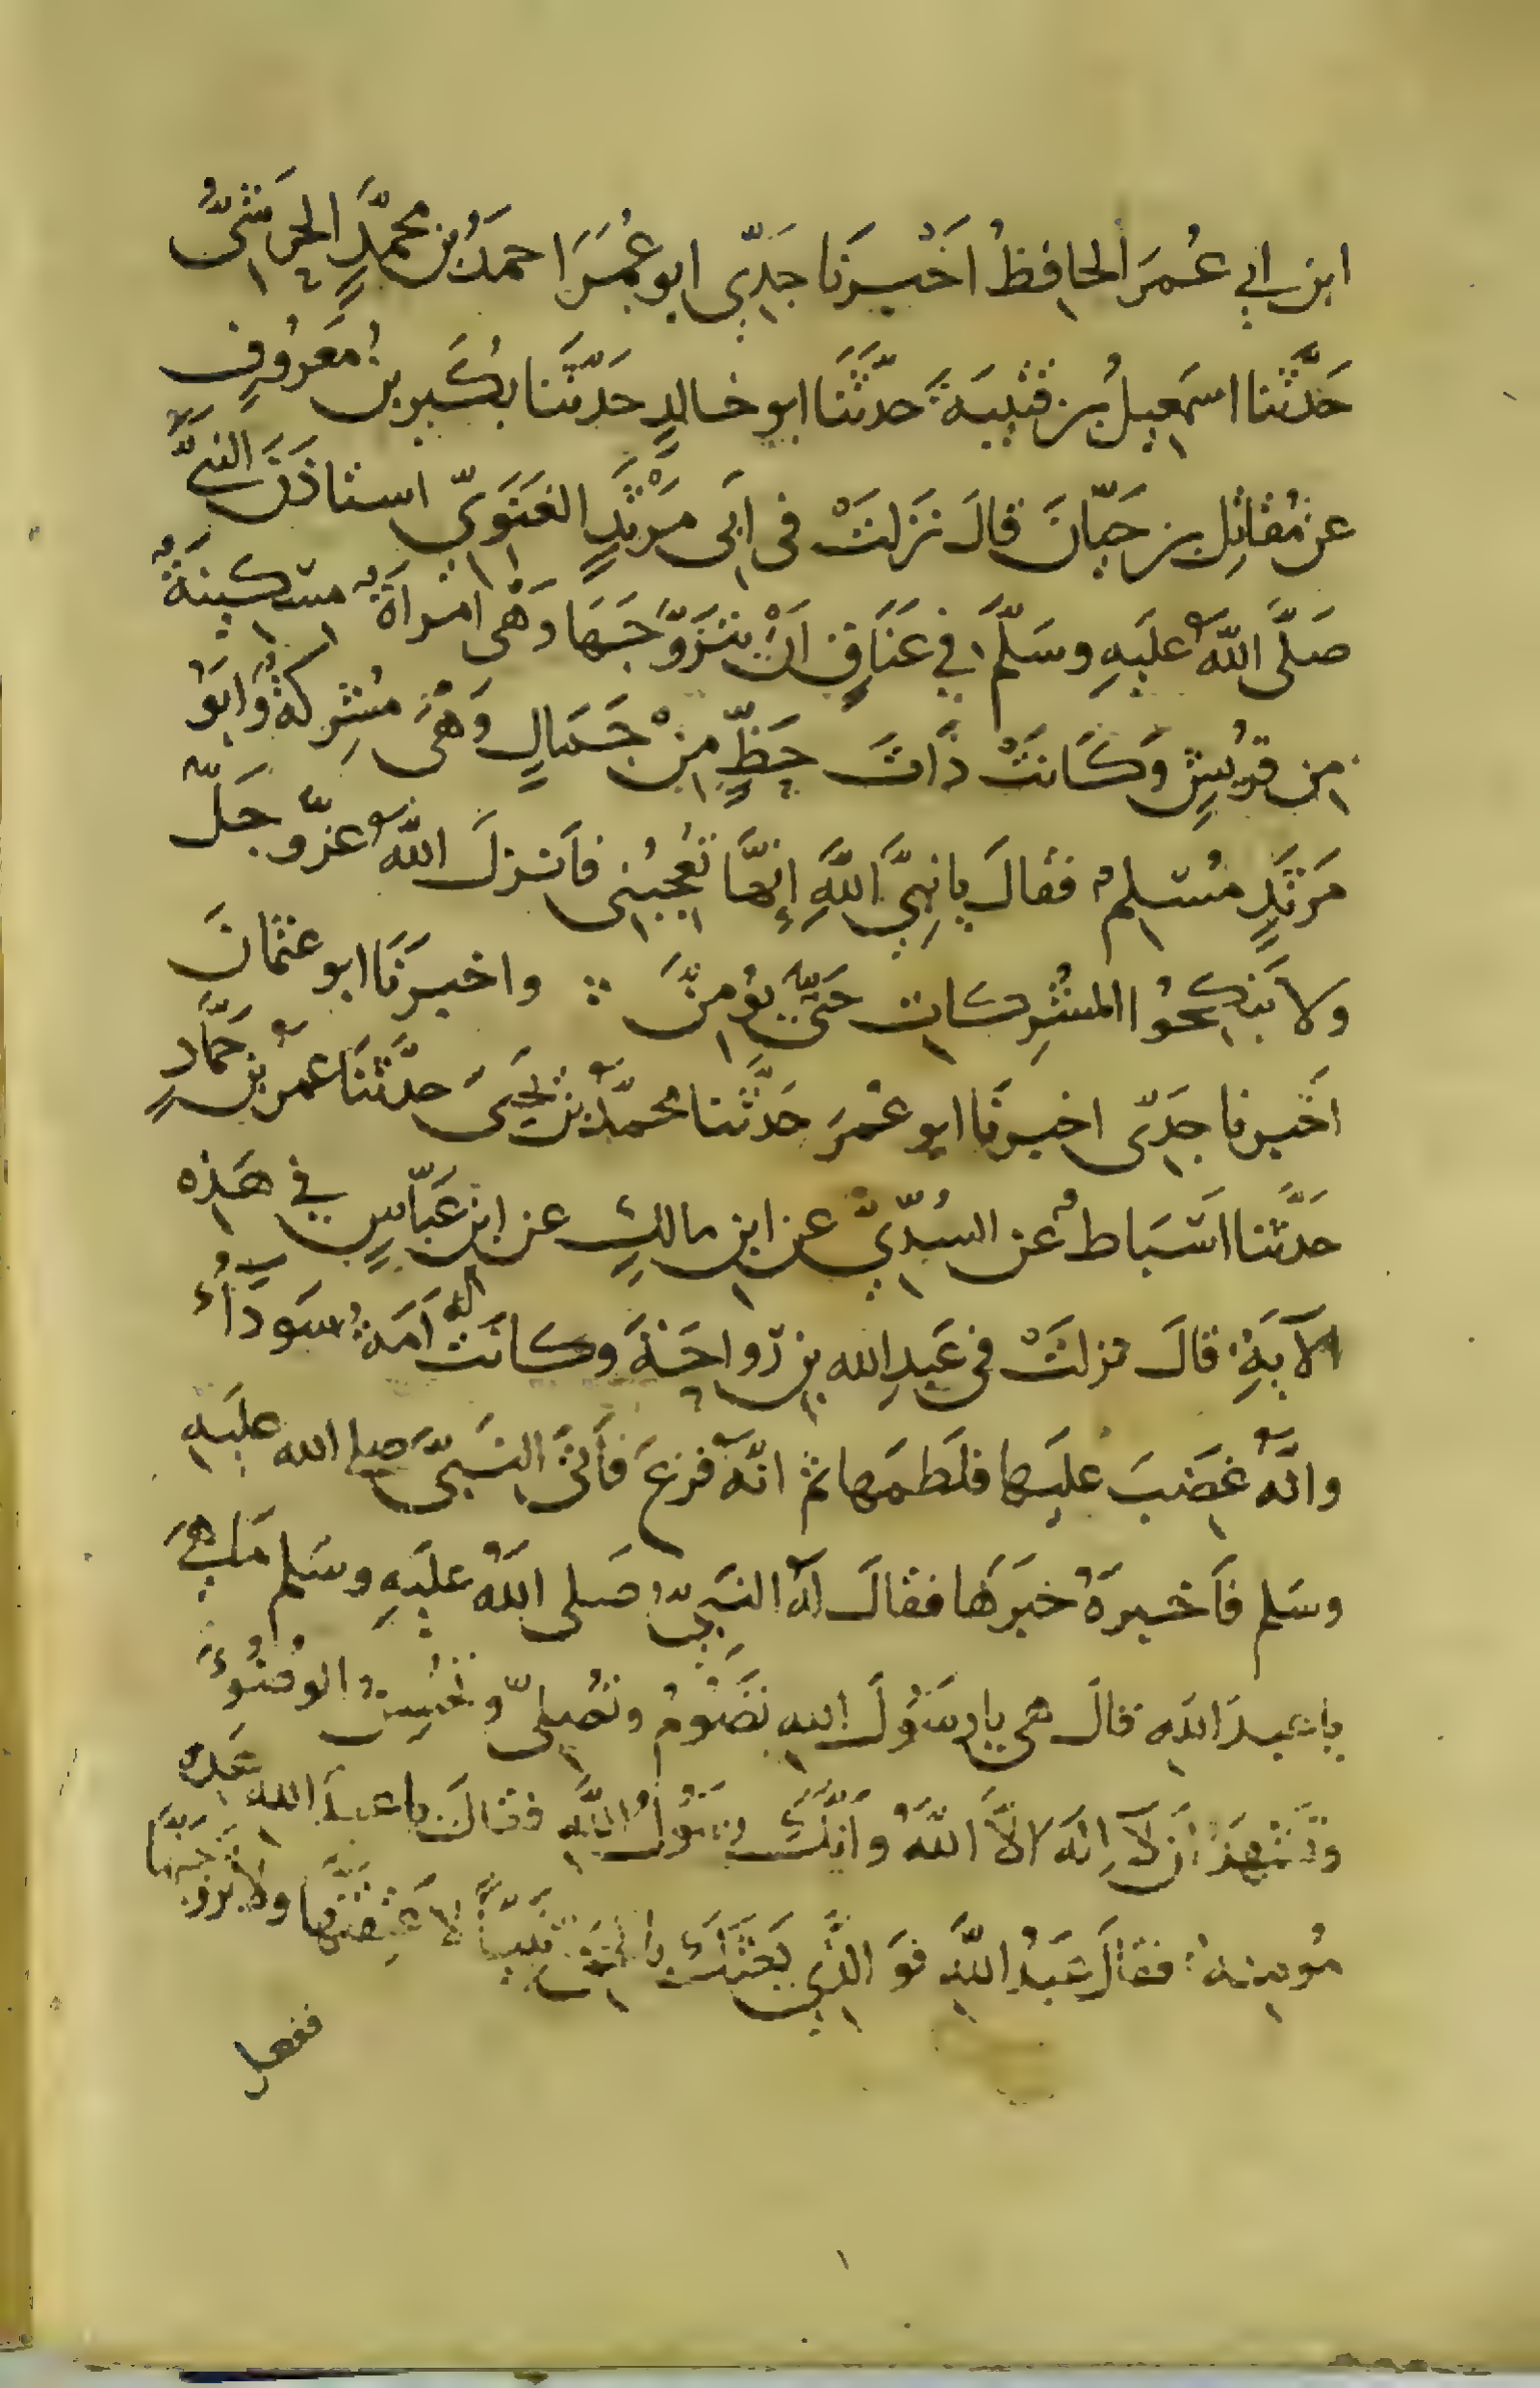 ابن ابي عُمَرَ الحافظُ اَخْبَرَنَا جَدِّي ابو عُمَرَ احمَدُ بن محمَّدٍ الحَرَشىُّ
حَدَّثَنا اسمعيلُ بن قتيبَةَ حدَّثَنَا ابو خالدٍ حَدّثَنَا بُكَير بن مَعرُوفٍ
عن مُقاتِلِ بن حَيّانَ قالَ نَزَلتْ فى ابَى مَرْثَدٍ الغَنَوِيّ استاذَنَ النبىَّ
صَلَّى اللهُ علَيهِ وسَلَّمَ في عَنَاقٍ اَنْ يتَزَوَّجَهَا وَهْىَ امْرأةٌ مسْكينَةٌ
من قرَيشٍ وَكَانَتْ ذَاتَ حَظٍّ مِنْ جَمَالٍ وَهْىَ مُشرِكَةٌ وَابَوُ
مَرثَدٍ مُسْلمٌ فقالَ يا نبِىَّ اللهِ إنَّهَا تُعجِبُنِى فاَنزلَ اللهُ عزّ وجَلّ
ولا تَنكِحُوا المشُرِكات حَتىّ يؤمِنَّ واخبرنَا ابو عثمانَ
اخَبرنا جدِّى اخبرنَا ابو عَمْرَ حَدَّثنا محمدُ بنُ يحَيىَ حدَّثنَا عَمرُ بن حَمَّادٍ
حدَّثنا اَسْبَاطٌ عن السُدّىِّ عن ابن مالكٍ عن ابن عَبّاسٍ في هَذِه
الآيَةِ قالَ نزلتْ فى عَبدِ الله بن رَواحَةَ وكانَت له امَةٌ سَودَاءُ
وانَّهُ غَضبَ علَيها فلَطَمَها ثم انّهُ فزعَ فاَتَى النَبىَّ صلى الله عليَهِ
وسَلم فاَخبرَهُ خبرَهَا فقالَ له النَبىُّ صَلى اللهُ علَيهِ وسَلم مَا هىَ
يا عبدَ اللهِ قالَ هى يا رسَوُلَ اللهِ تصَومُ وتُصلِّى وتُحسِنُ الوُضُوءَ
وتَشَهدُ اَن لاَ اِلَهَ الاَّ اللهُ وَانّكَ رسَوُلُ اللهِ فقالَ يا عبدَ الله هَذِه
مُومِنةٌ فقالَ عَبدُ اللهِ فوَ الذَّى بَعَثكَ بالحقّ نَبِيّاً لاعَتِقَنّها ولاتزوَّجَنَّها
ففعل